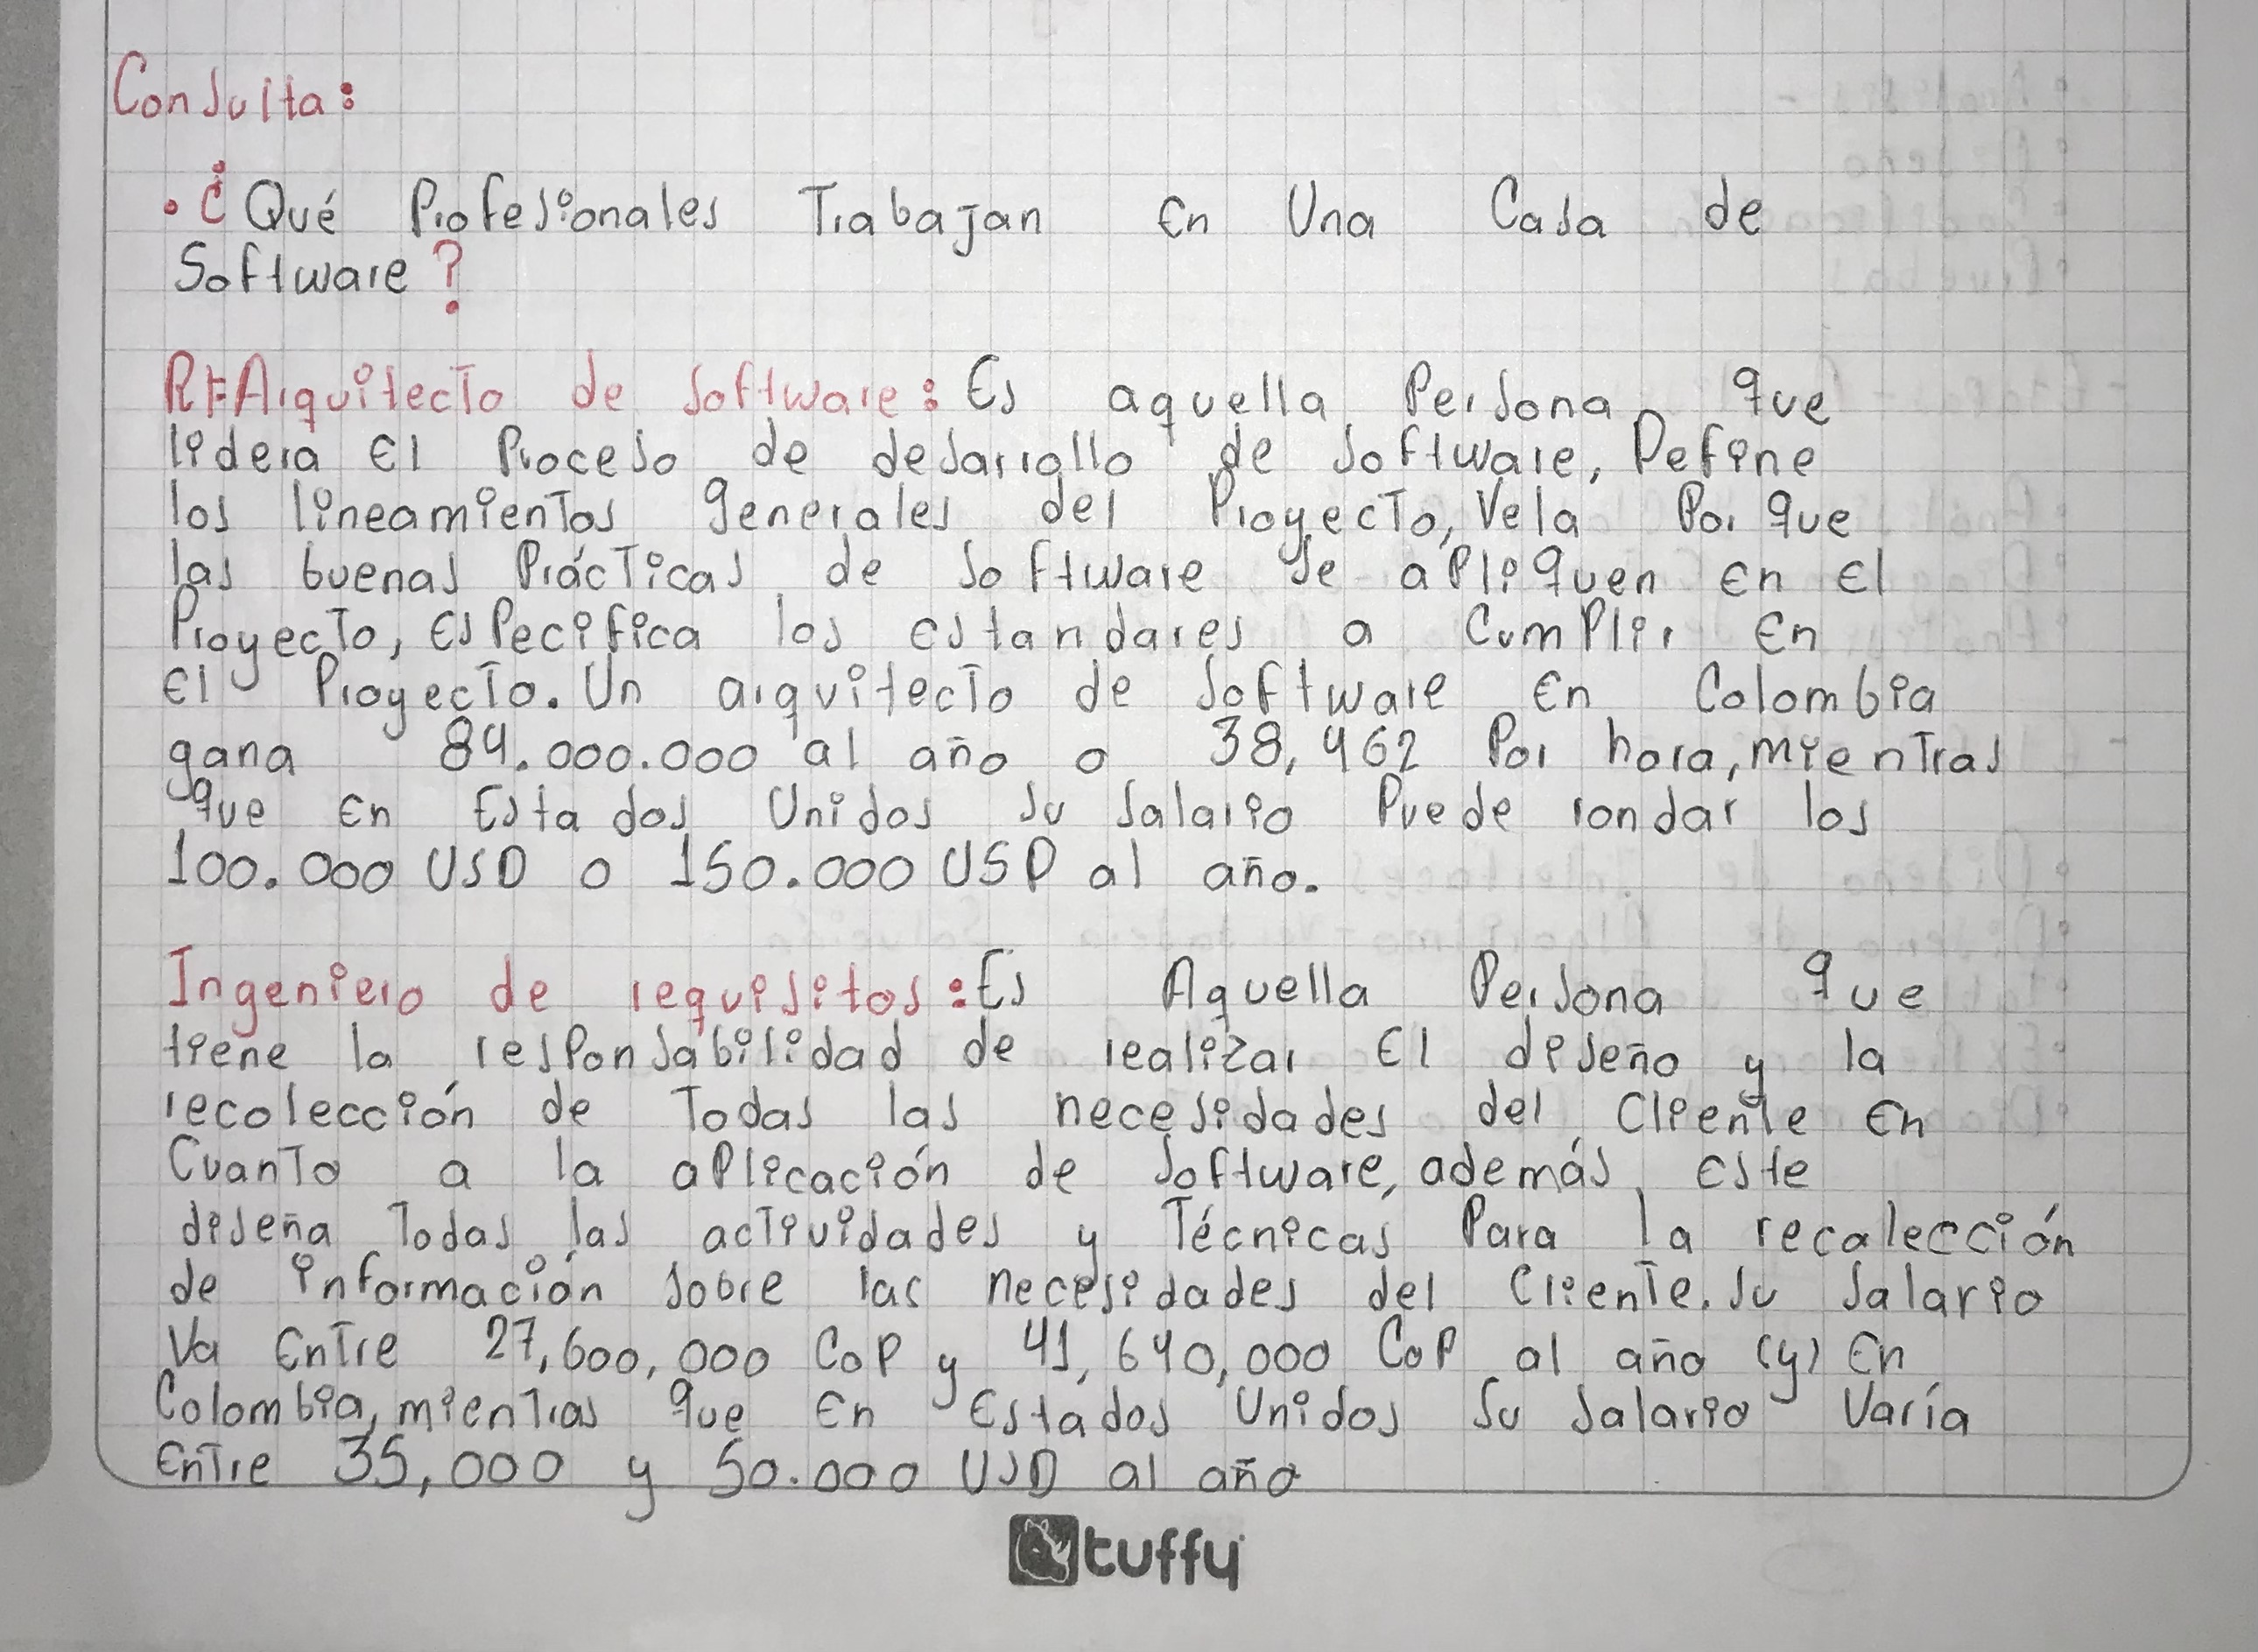 Consulta:
• ¿Qué Profesionales Trabajan en Una Casa de
Software?
R/=Arquitecto de Software: Es aquella Persona que
lidera el Proceso de desarrollo de software, Define
los lineamientos generales del Proyecto, Vela Por que
las buenas Prácticas de software se apliquen en el
Proyecto, especifica los estandares a Cumplir en
el Proyecto. Un arquitecto de software en Colombia
gana 84.000.000 al año o 38,462 Por hora, mientras
que en Estados Unidos su Salario Puede rondar los
100.000 USD o 150.000 USD al año.
Ingeniero de requisitos: Es Aquella Persona que
tiene la responsabilidad de realizar el diseño y la
recolección de Todas las necesidades del Cliente en
Cuanto a la aplicación de software, además este
diseña Todas las actividades y Técnicas Para la recalección
de información sobre las necesidades del Cliente. Su Salario
Va entre 27,600,000 COP y 41,640,000 COP al año (y) en
Colombia, mientras que en Estados Unidos Su Salario Varía
entre 35,000 y 50.000 USD al año
tuffy